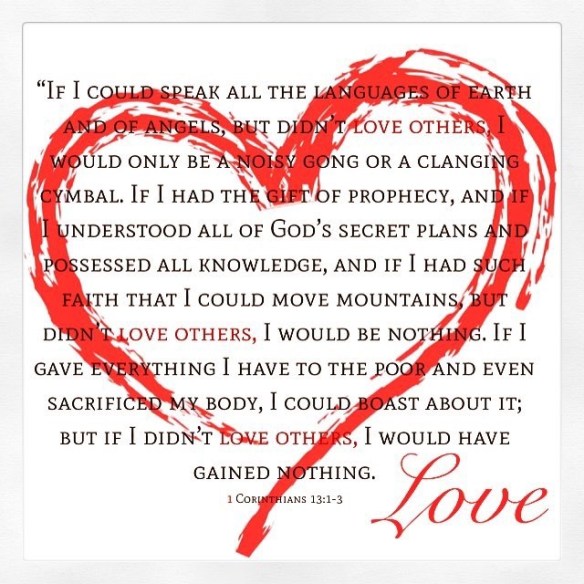 “If I could speak all the languages of earth
and of angels, but didn’t love others, I
would only be a noisy gong or a clanging
cymbal. If I had the gift of prophecy, and if
I understood all of God’s secret plans and
possessed all knowledge, and if I had such
faith that I could move mountains, but
didn’t love others, I would be nothing. If I
gave everything I have to the poor and even
sacrificed my body, I could boast about it;
but if I didn’t love others, I would have
gained nothing.
1 Corinthians 13:1-3
Love